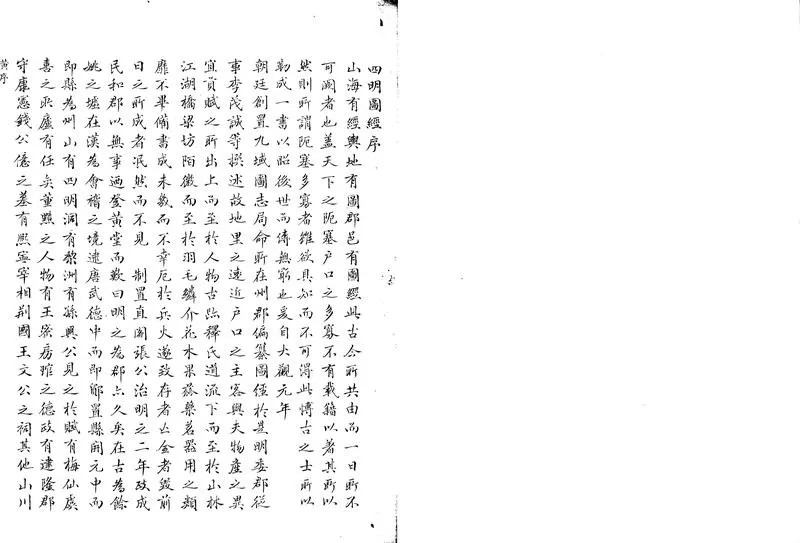 四明圖經序
山海有經輿地有圖郡邑有圖經此古今所共由而一日所不
可闕者也蓋天下之阨塞戶口之多寡不有載籍以著其所以
然則所謂阨塞多寡者雖欲具知而不可得此博古之士所以
勒成一書以昭後世而傳無窮也爰自大觀元年
朝廷創置九域圖志局命所在州郡編纂圖經於是明委郡從
事李茂誠等撰述故地里之遠近戶口之主客與夫物產之異
宜貢賦之所出上而至於人物古跡釋氏道流下而至於山林
江湖橋梁坊陌微而至於羽毛鱗介花木果蓏藥茗器用之類
靡不畢備書成未幾而不幸厄於兵火遂致存者亡全者毀前
日之所成者泯然而不見 制置直閣張公治明之二年政成
民和郡以無事迺登黃堂而歎曰明之為郡亦久矣在古為餘
姚之墟在漢為會稽之境逮唐武德中而即鄮置縣開元中而
即縣為州山有四明洞有黎洲有孫興公見之於賦有梅仙處
喜之所廬有任奕董黯之人物有王密房琯之德政有建隆郡
守康憲錢公億之墓有熙寧宰相荊國王文公之祠其他山川
黃序